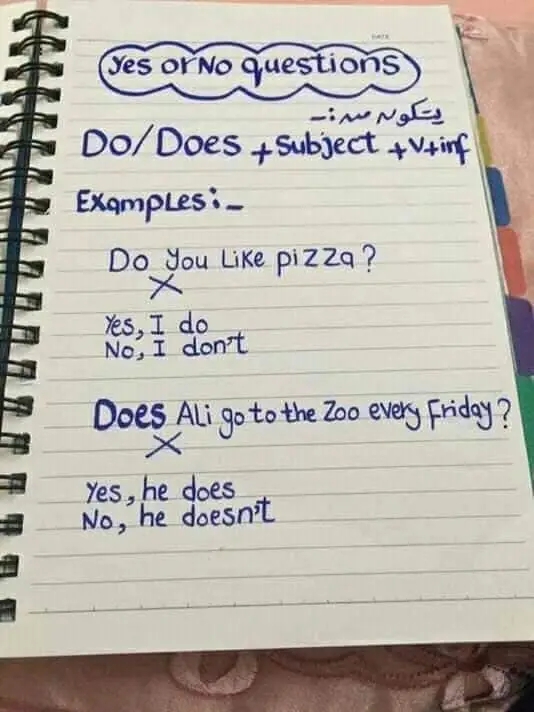 DATE
Yes or No questions
يتكون من :-
Do/Does + Subject + V+inf
Examples:-
Do You Like pizza?
X
Yes, I do
No, I don't
Does Ali go to the Zoo every Friday?
X
Yes, he does
No, he doesn't